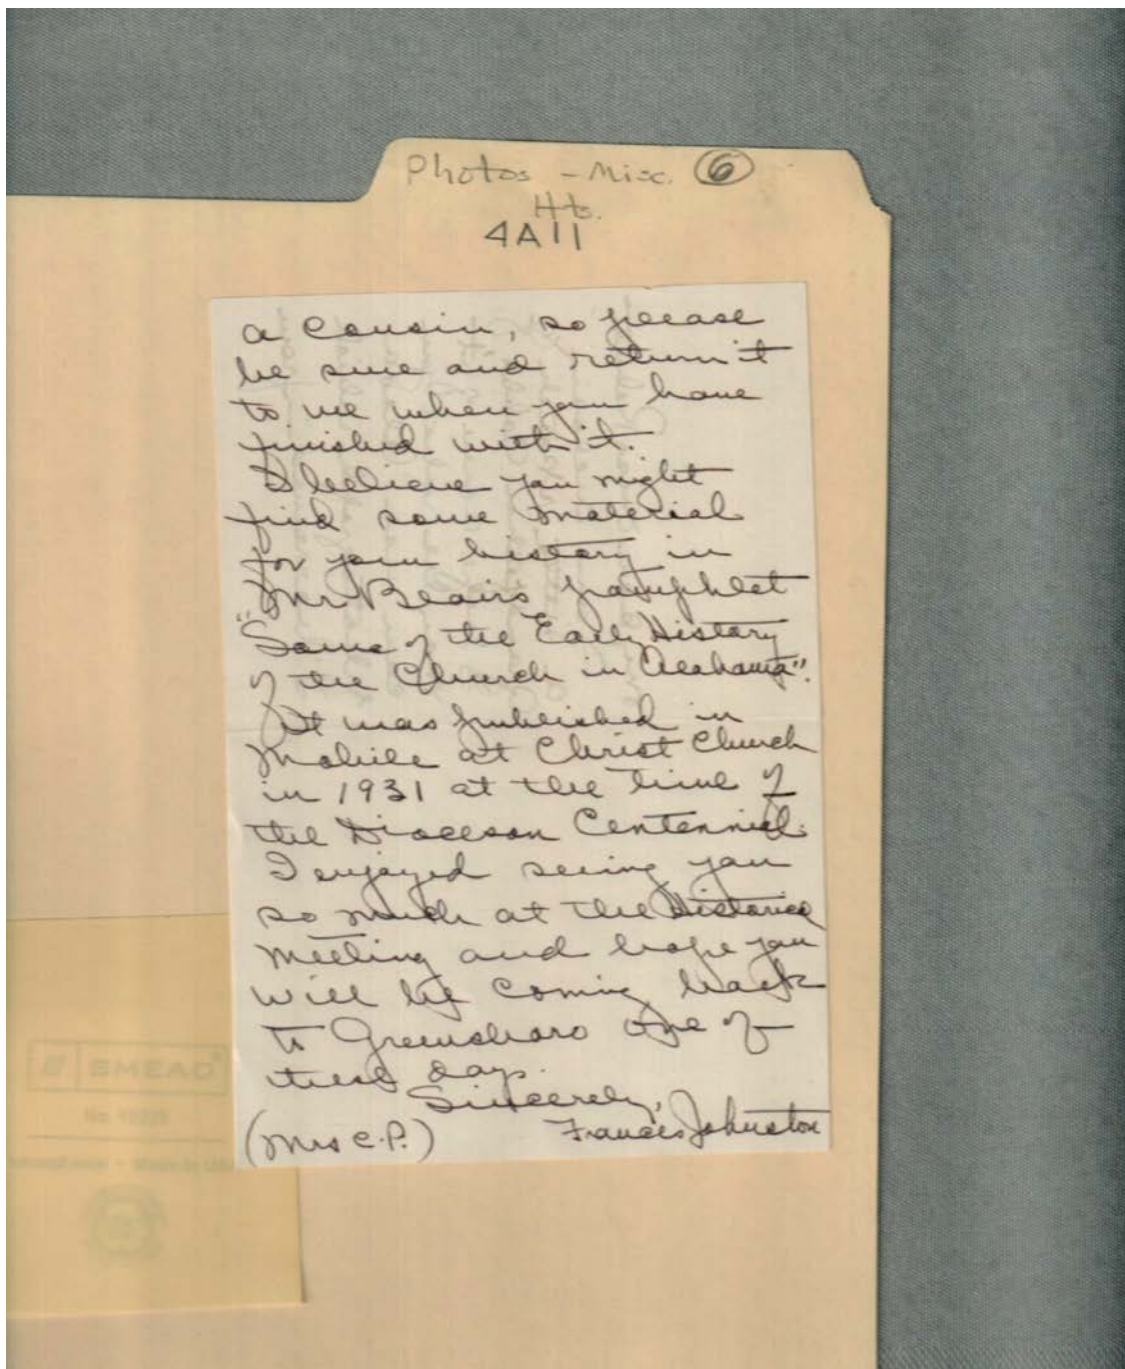 Photos - Misc. 6
Hts.
4A11
a cousin, so please
be sure and return it
to me when you have
finished with it.
I believe you might
find some material
for your history in
Mr Blair's pamphlet
"Some of the Early History
of the Church in Alabama".
It was published in
Mobile at Christ Church
in 1931 at the time of
the Diocesan Centennial.
I enjoyed seeing you
so much at the Historical
meeting and hope you
will be coming back
to Greensboro one of
these days.
Sincerely,
(Mrs C.P.) Frances Johnston
SMEAD
No.